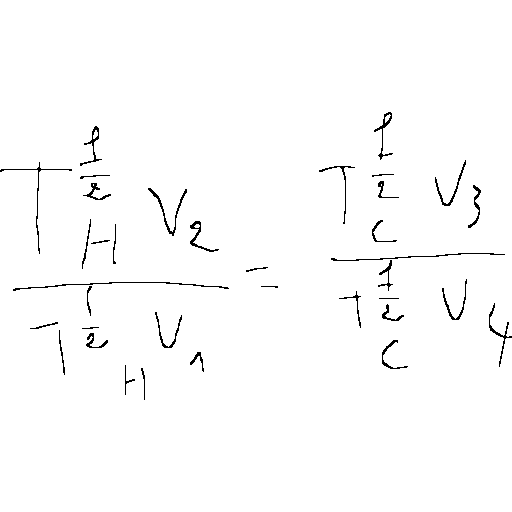 \frac{T_H^{\frac{1}{2}} V_2}{T_H^{\frac{1}{2}} V_1} = \frac{T_C^{\frac{1}{2}} V_3}{T_C^{\frac{1}{2}} V_4}